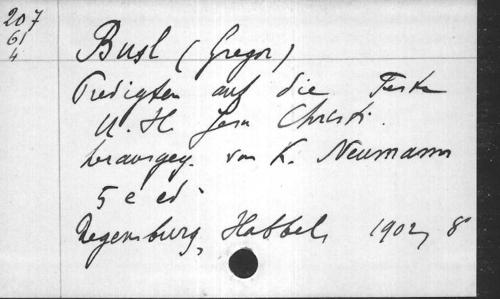 207
61
4
Busl (Gregor)
Predigten auf die Feste
U. H Jesu Christi.
herausgeg. von K. Neumann
5e ed.
Regensburg, Habbel, 1902, 8°